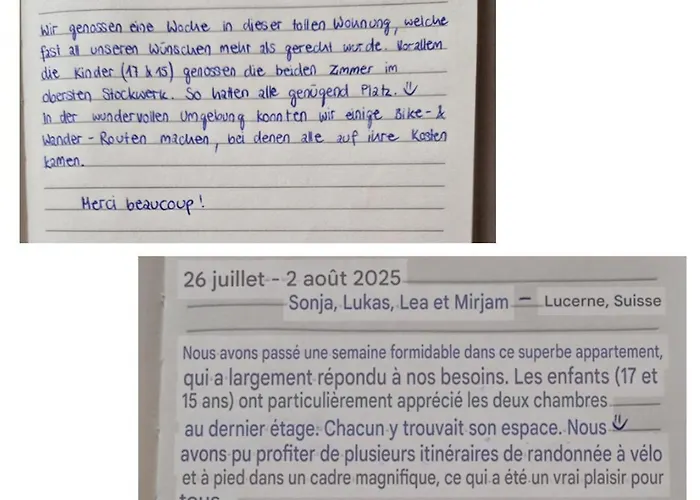 Wir genossen eine Woche in dieser tollen Wohnung, welche
fast all unseren Wünschen mehr als gerecht wurde. Vorallem
die Kinder (17 & 15) genossen die beiden Zimmer im
obersten Stockwerk. So hatten alle genügend Platz.
In der wundervollen Umgebung konnten wir einige Bike- &
Wander-Routen machen, bei denen alle auf ihre Kosten
kamen.
Merci beaucoup!
26 juillet - 2 août 2025
Sonja, Lukas, Lea et Mirjam - Lucerne, Suisse
Nous avons passé une semaine formidable dans ce superbe appartement,
qui a largement répondu à nos besoins. Les enfants (17 et
15 ans) ont particulièrement apprécié les deux chambres
au dernier étage. Chacun y trouvait son espace. Nous
avons pu profiter de plusieurs itinéraires de randonnée à vélo
et à pied dans un cadre magnifique, ce qui a été un vrai plaisir pour
tous.